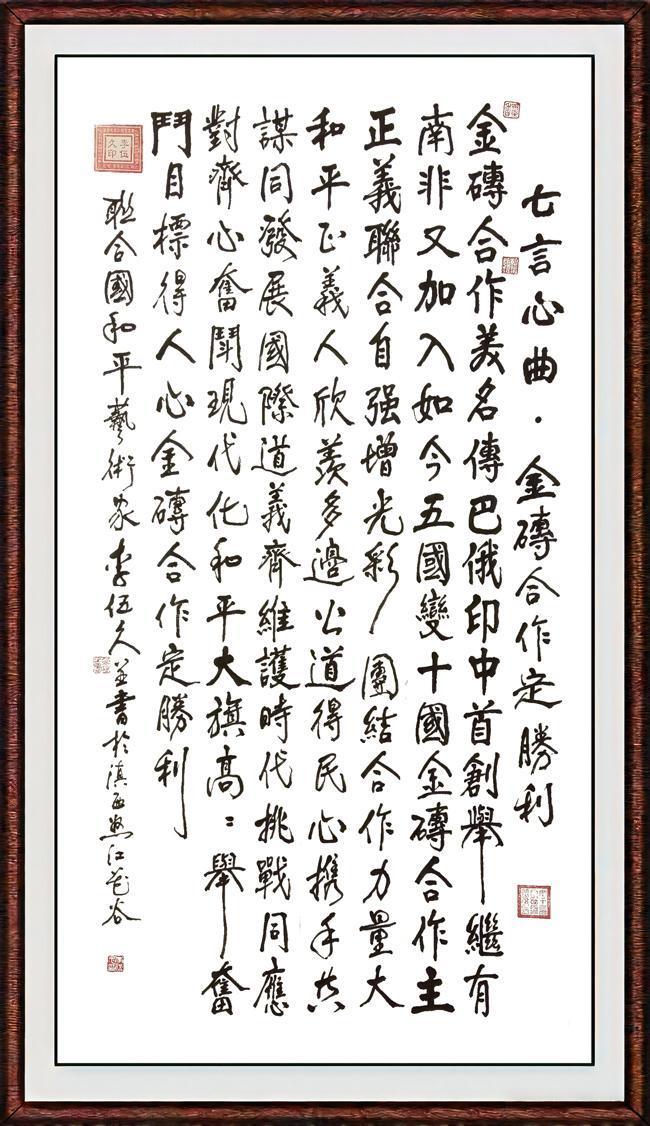 七言心曲·金磚合作定勝利
金磚合作美名傳巴俄印中首創舉繼有
南非又加入如今五國變十國金磚合作主
正義聯合自强增光彩團結合作力量大
和平正義人欣羨多邊公道得民心携手共
謀同發展國際道義齊維護時代挑戰同應
對齊心奮鬥現代化和平大旗高〻舉奮
鬥目標得人心金磚合作定勝利
聯合國和平藝術家李伍久並書於滇西怒江花谷
李伍久印